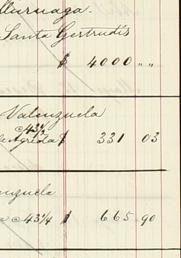 Santa Gertrudis
$ 4000 " "
Valenzuela
c/43½
$ 331 03
nzuela
c/43¼ $ 665.90